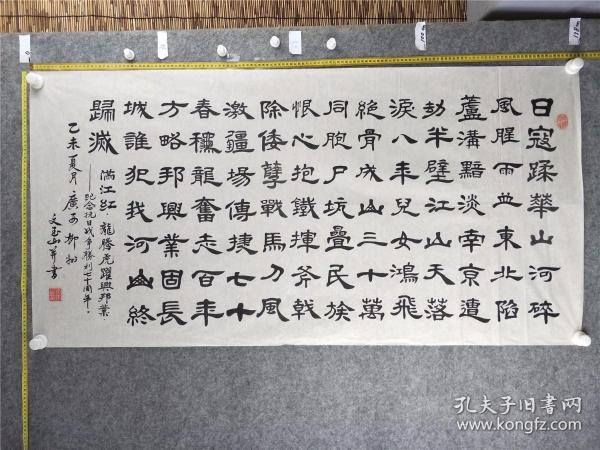 日寇蹂華山河碎
風腥雨血東北陷
蘆溝黯淡南京遭
劫半壁江山天落
淚八年兒女鴻飛
絕骨成山三十萬
同胞尸坑疊民族
恨心抱鐵揮斧戟
除倭孽戰馬刀風
激疆場傳捷七十
春穠龍奮志百年
方略邦興業固長
城誰犯我河山終
歸滅
满江红·龍腾虎躍興邦業
——纪念抗日战争勝利七十周年。
乙未夏月廣西柳州
文玉山并書
孔夫子旧书网
www.kongfz.com